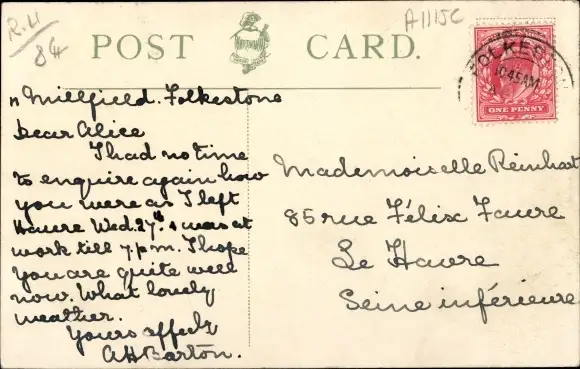 R.H
84
A1115C
POST CARD.
FOLKESTONE
10 45 AM
ONE PENNY
11 Millfield. Folkestone
Dear Alice
I had no time
to enquire again how
you were as I left
Havre Wed. 27th & was at
work till 7 p.m. I hope
you are quite well
now. What lovely
weather.
Yours affecly
AHBarton.
Mademoiselle Reinhart
85 rue Félix Faure
Le Havre
Seine inférieure